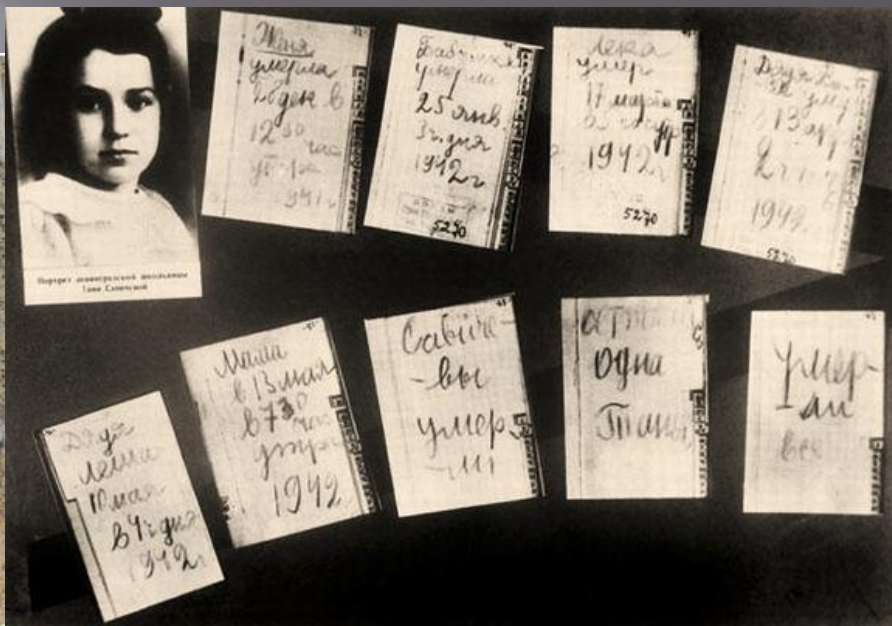 Портрет ленинградской школьницы
Тани Савичевой
Женя
умерла
28 дек в
12 30
час
утра
1941 г
Бабушка
умерла
25 янв.
3 ч. дня
1942 г
5270
Лека
умер
17 марта
1942 г
5270
Дядя Ва-
ся умер
13 апр
2 ч
5270
Дядя
Леша
10 мая
в 4 ч дня
1942 г
Мама
в 13 мая
в 7 30
час
утра
1942
Савиче-
-вы
умер
-ли
осталась
одна
Таня
умер-
-ли
все